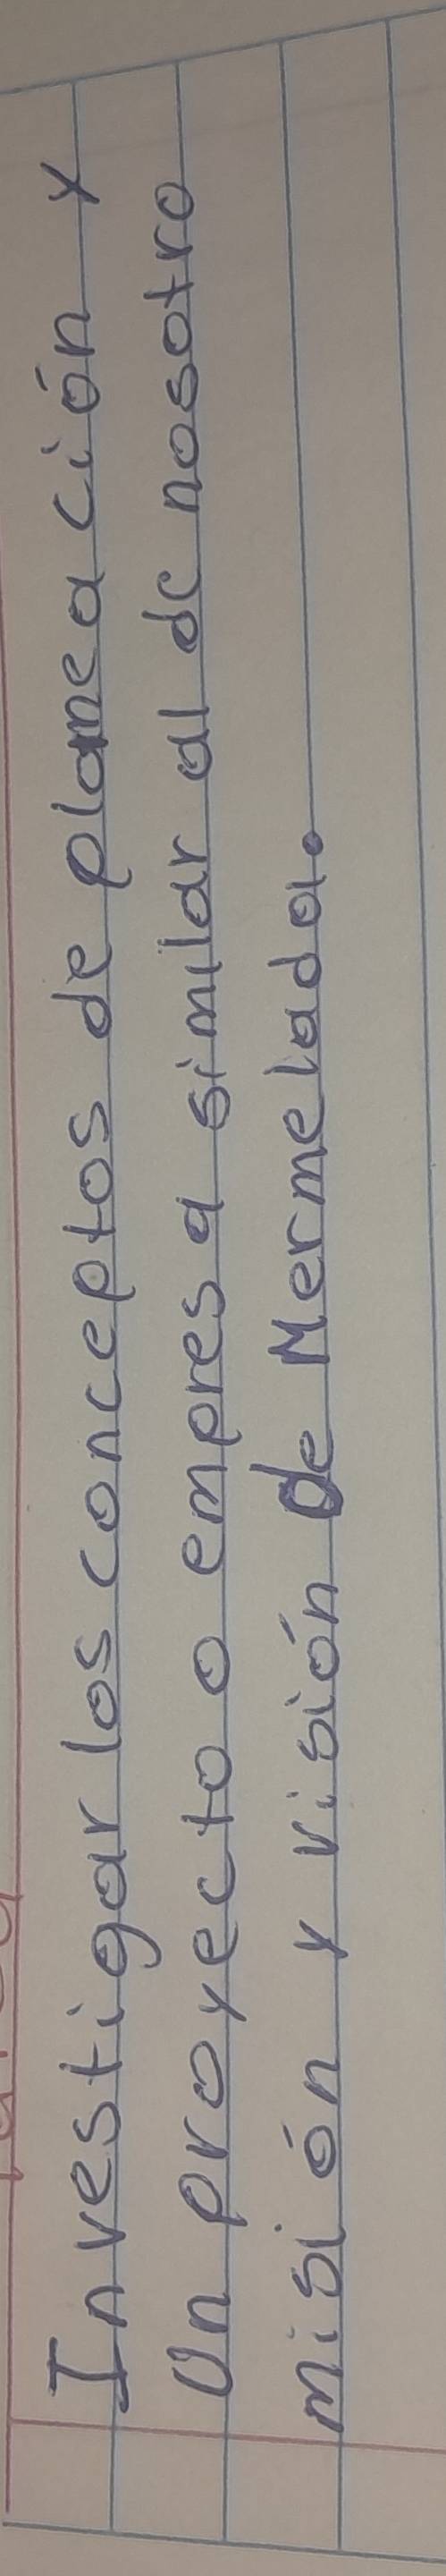 Investigar los conceptos de planeación y
Un proyecto o empresa similar al de nosotro
misión y visión de Mermelada.